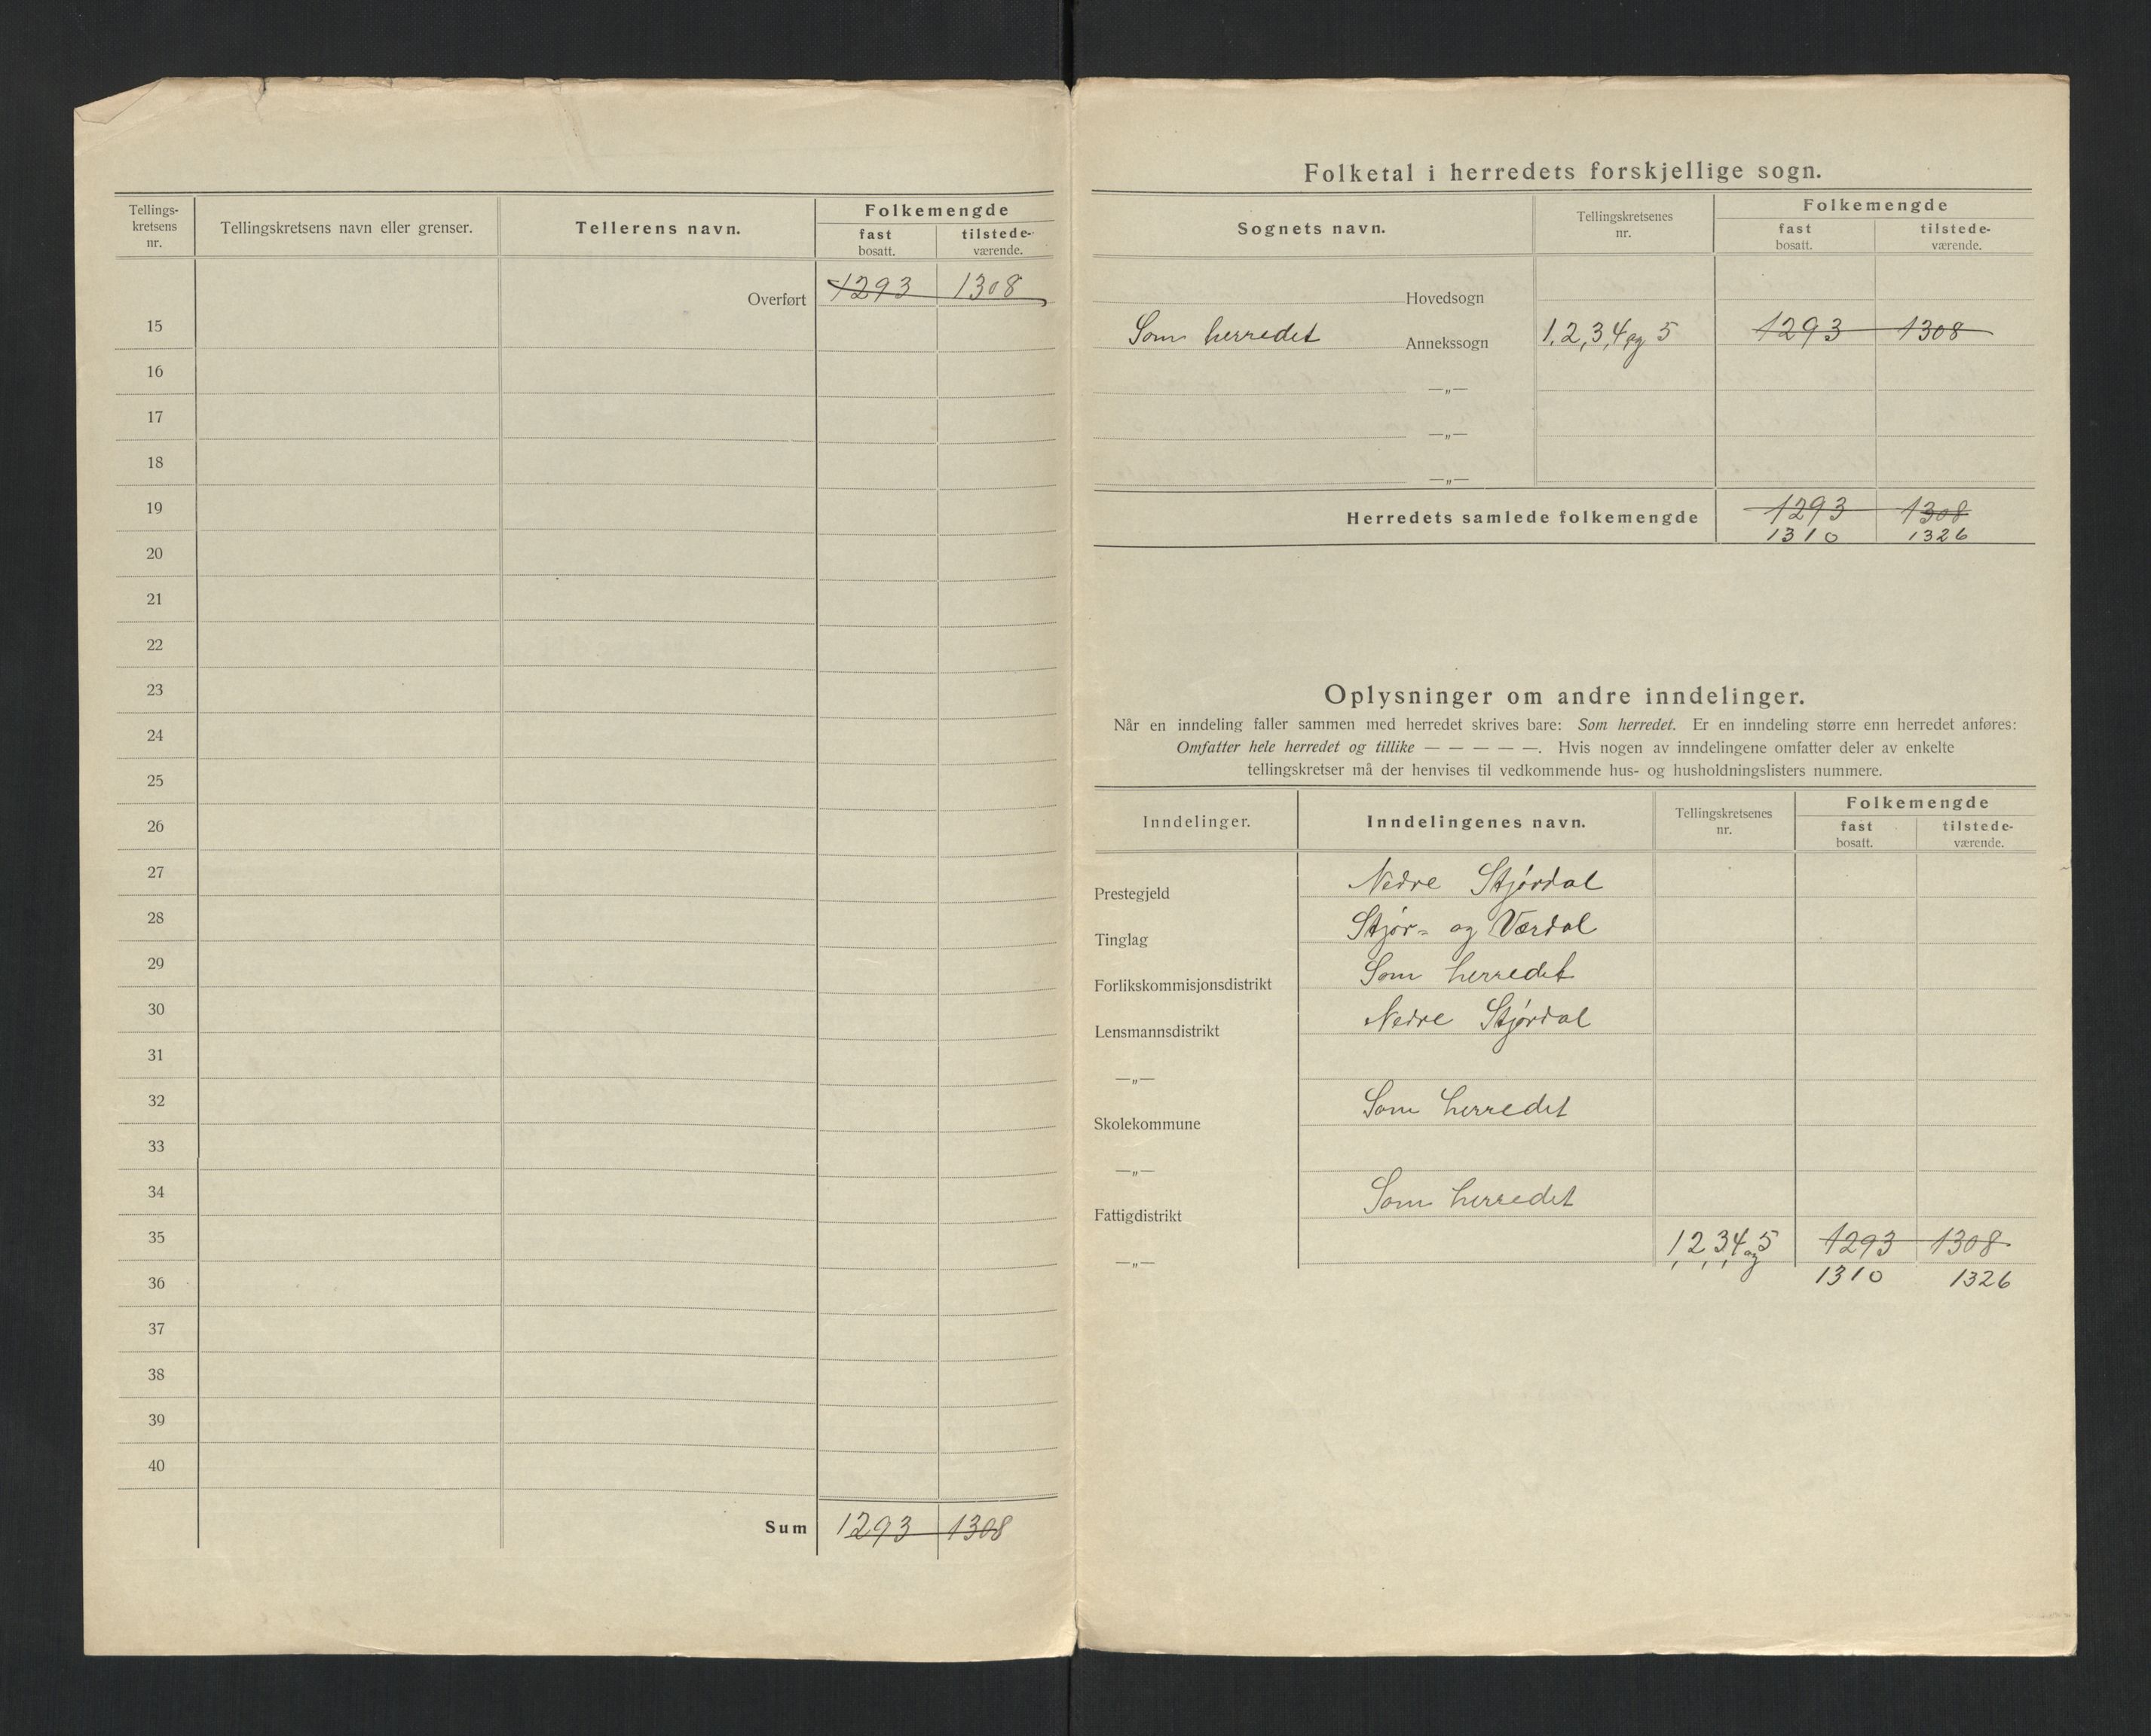 Tellings-
kretsens
nr.
Tellingskretsens navn eller grenser.
Tellerens navn.
Folkemengde
fast
bosatt.
tilstede-
værende.
Overført 1293 1308
15
16
17
18
19
20
21
22
23
24
25
26
27
28
29
30
31
32
33
34
35
36
37
38
39
40
Sum 1293 1308
Folketal i herredets forskjellige sogn.
Sognets navn.
Tellingskretsenes
nr.
Folkemengde
fast
bosatt.
tilstede-
værende.
Hovedsogn
Som herredet Annekssogn 1, 2, 3, 4 og 5 1293 1308
—„—
—„—
—„—
Herredets samlede folkemengde 1293 1308
1310 1326
Oplysninger om andre inndelinger.
Når en inndeling faller sammen med herredet skrives bare: Som herredet. Er en inndeling større enn herredet anføres:
Omfatter hele herredet og tillike — — — — —. Hvis nogen av inndelingene omfatter deler av enkelte
tellingskretser må der henvises til vedkommende hus- og husholdningslisters nummere.
Inndelinger.
Inndelingenes navn.
Tellingskretsenes
nr.
Folkemengde
fast
bosatt.
tilstede-
værende.
Prestegjeld Nedre Stjørdal
Tinglag Stjør- og Værdal
Forlikskommisjonsdistrikt Som herredet
Lensmannsdistrikt Nedre Stjørdal
—„—
Skolekommune Som herredet
—„—
Fattigdistrikt Som herredet
—„— 1, 2, 3, 4 og 5 1293 1308
1310 1326